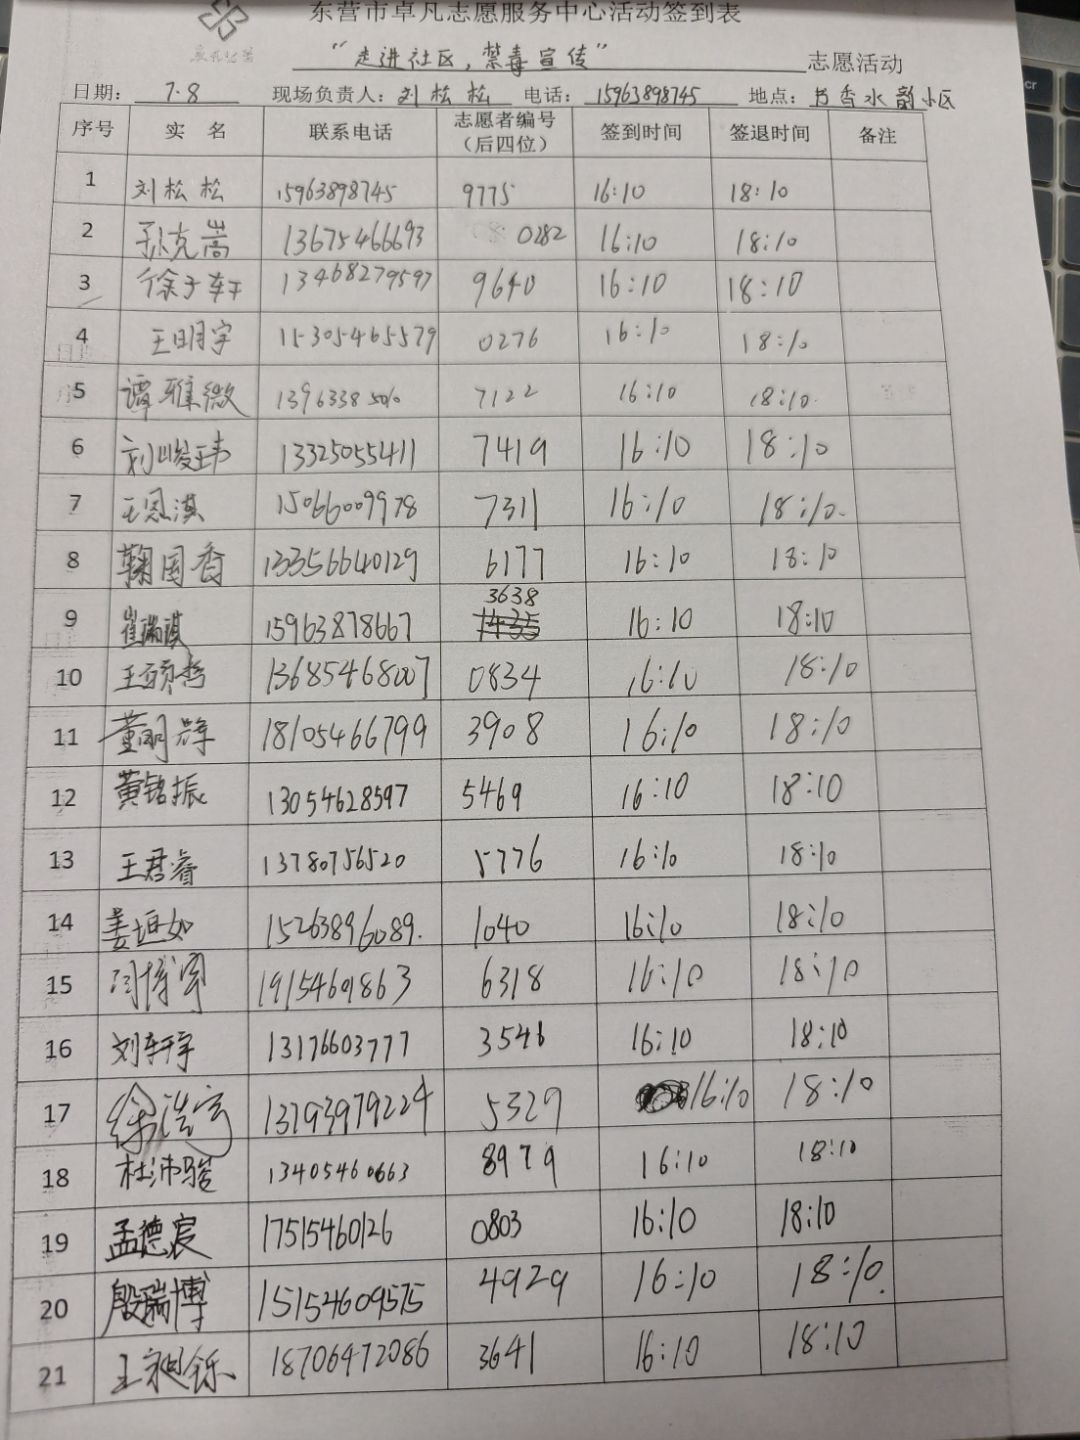 东营市卓凡志愿服务中心活动签到表
“走进社区，禁毒宣传” 志愿活动
日期： 7.8 现场负责人：刘松松 电话：15963898745 地点：书香水韵小区
序号 实 名 联系电话 志愿者编号（后四位） 签到时间 签退时间 备注
1 刘松松 15963898745 9775 16:10 18:10
2 孙克嵩 13675466693 0282 16:10 18:10
3 徐子轩 13468279597 9640 16:10 18:10
4 王明宇 15305465579 0276 16:10 18:10
5 谭雅微 7122 16:10 18:10
6 刘峻玮 13325055411 7419 16:10 18:10
7 王恩淇 15066009978 7311 16:10 18:10
8 鞠国香 13356640129 6177 16:10 18:10
9 崔瑞琪 15963878667 3638 16:10 18:10
10 王硕哲 13685468007 0834 16:10 18:10
11 董明辉 18105466799 3908 16:10 18:10
12 黄铭振 13054628597 5469 16:10 18:10
13 王君睿 13780756520 5776 16:10 18:10
14 姜垣如 15263896089. 1040 16:10 18:10
15 闫博宇 19154601863 6318 16:10 18:10
16 刘轩宇 13176603777 3546 16:10 18:10
17 徐浩宇 13793979224 5329 16:10 18:10
18 杜沛骏 13405460663 8979 16:10 18:10
19 孟德宸 17515460126 0803 16:10 18:10
20 殷瑞博 15154609575 4929 16:10 18:10.
21 王昶铄 18706472086 3641 16:10 18:10